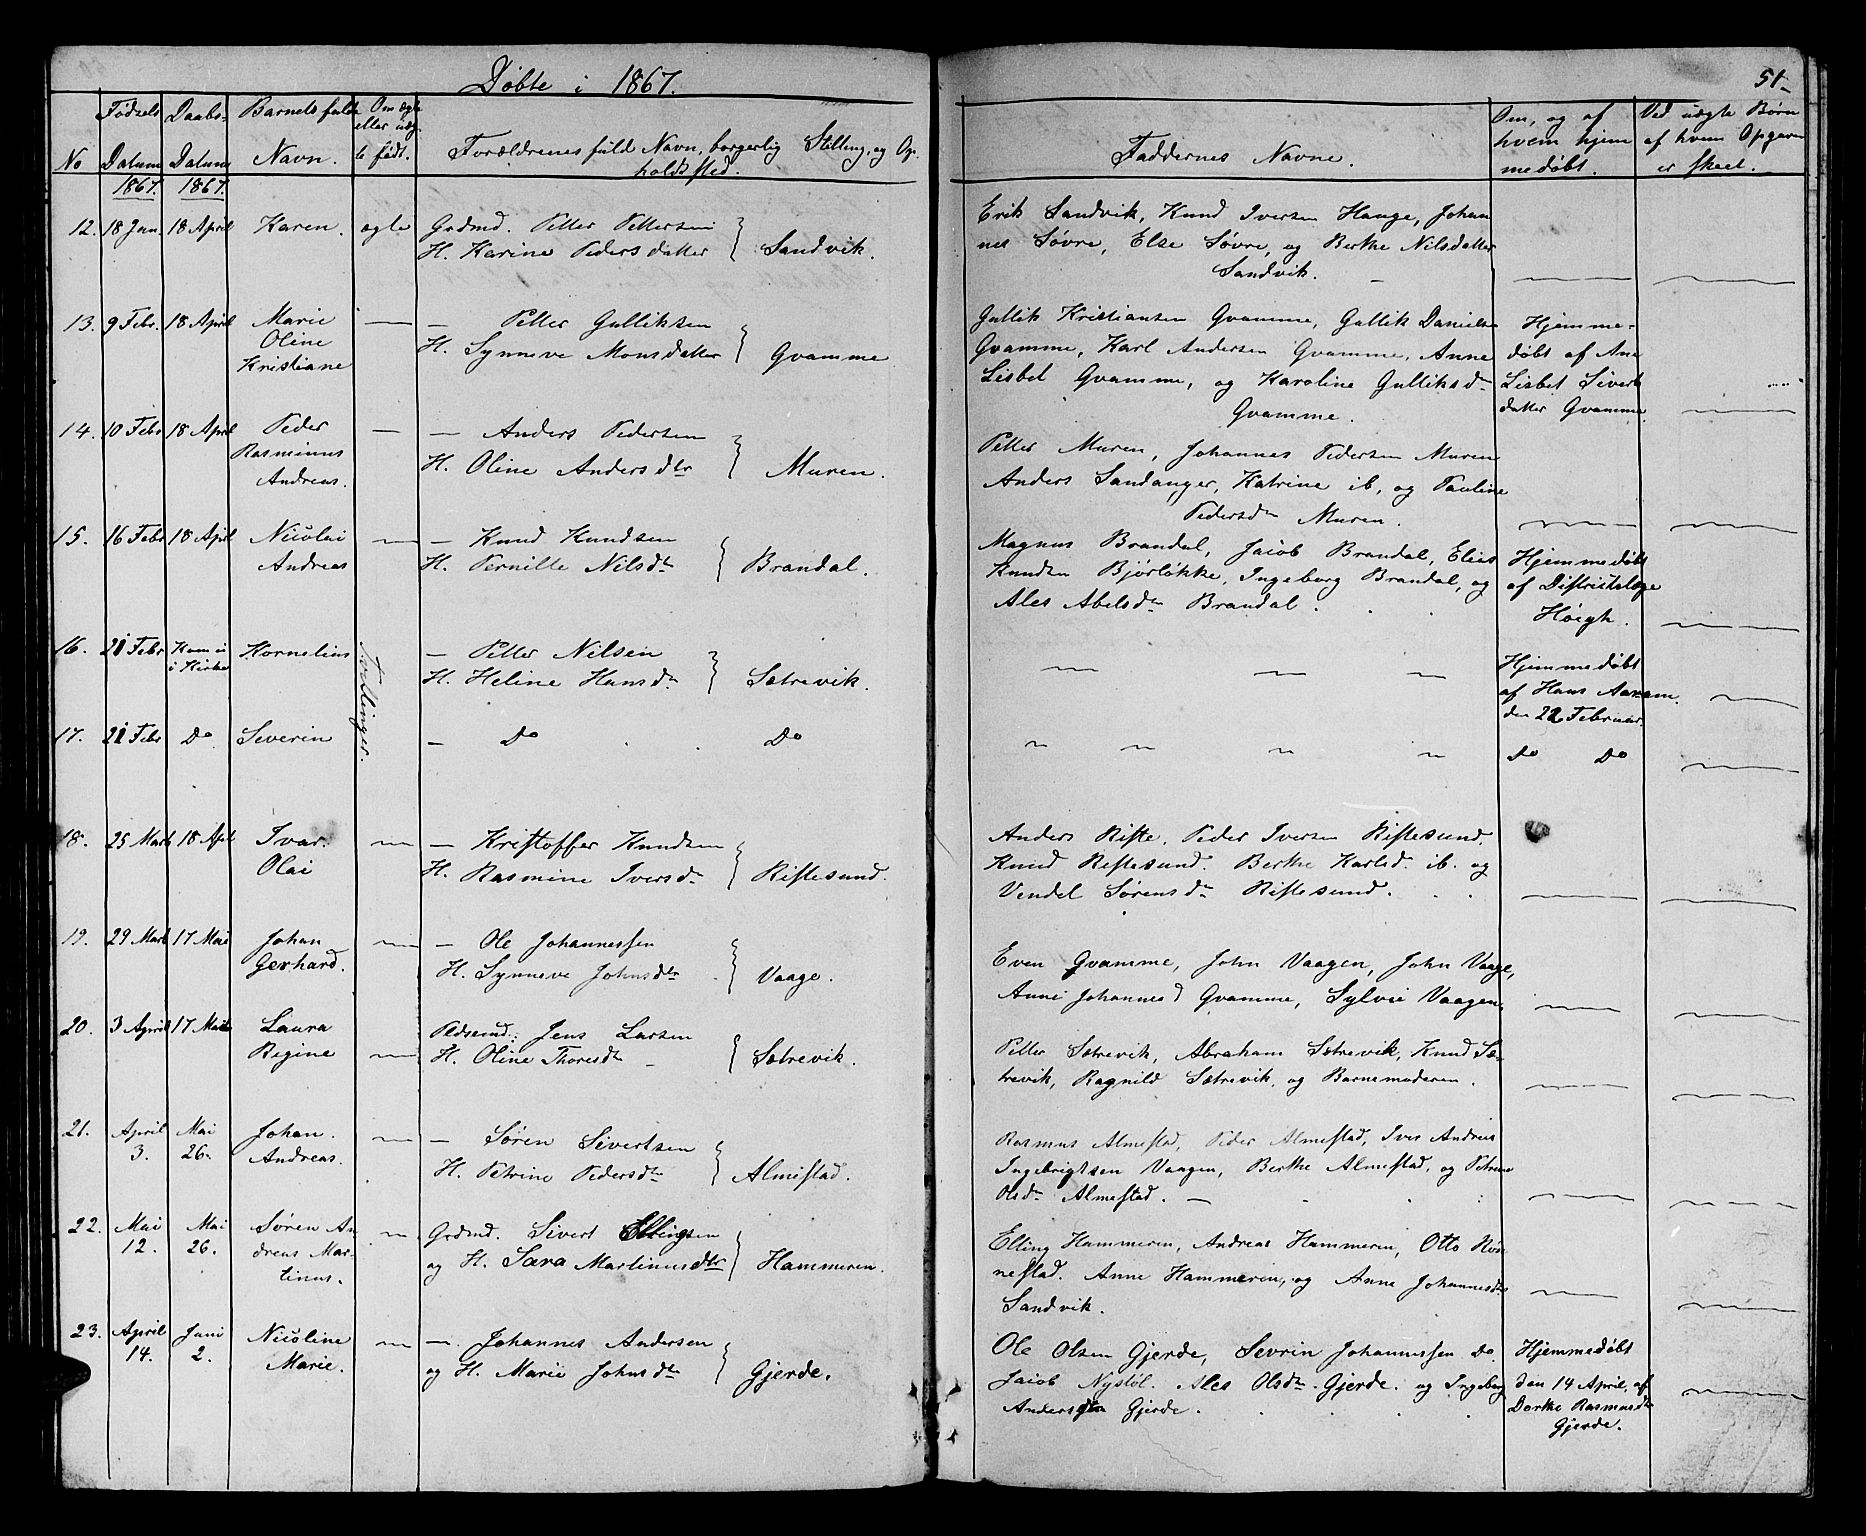 Døbte i 1867.
51-
No
Fødsels Datum
Daabs- Datum
Barnets fulde Navn.
Om ægte eller uæg- te født.
Forældrenes fuld Navn, borgerlig Stilling, og Op- holdssted.
Faddernes Navne.
Om, og af hvem hjem medøbt.
Ved uægte Børn af hvem Opgaven er skeet.
1867. 1867.
12. 18 Jan. 18 April Karen. ægte Grdmd. Petter Pettersen
H. Karine Pedersdatter } Sandvik.
Erik Sandvik, Knud Iversen Hauge, Johan
nes Søvre, Else Søvre, og Berthe Nilsdatter
Sandvik.
13. 9 Febr. 18 April Marie — — Petter Gulliksen
Oline H. Synneve Monsdatter } Gvamme
Kristiane
Gullik Kristiansen Gvamme, Gullik Daniels
Gvamme, Karl Andersen Gvamme, Anne
Lisbet Gvamme, og Karoline Gulliksd
Gvamme.
Hjemme-
døbt af Ane
Lisbet Sivert
datter Gvamme
14. 10 Febr 18 April Peder — — Anders Pedersen
Rasminus H. Oline Andersdtr } Muren.
Andreas.
Petter Muren, Johannes Pedersen Muren
Anders Sandanger, Katrine ib, og Pauline
Pedersd Muren.
15. 16 Febr 18 April Nicolai — — Knud Knudsen
Andreas H. Pernille Nilsdtr } Brandal.
Magnus Brandal, Jacob Brandal, Elias
Knudsen Bjørløkke, Ingeborg Brandal, og
Ales Abelsd Brandal.
Hjemmedøbt
af Distriktslæge
Høigh.
16. 21 Febr Kom ei i Kirke Kornelius Tvillinger. — Petter Nilsen
H. Heline Hansd } Sætrevik.
Hjemmedøbt
af Hans Aaram
den 22 Februar.
17. 21 Febr Do Severin — Do Do
Do Do
18. 25 Marts 18 April Ivar — — Kristoffer Knudsen
Olai H. Rasmine Iversd } Riftesund.
Anders Rifte, Peder Iversen Riftesund.
Knud Riftesund. Berthe Karlsd ib. og
Vendel Sørensd Riftesund.
19. 29 Marts 17 Mai Johan — — Ole Johannessen
Gerhard. H. Synneve Johnsdtr } Vaage.
Even Gvamme, John Vaagen, John Vaage,
Anne Johannesd Gvamme, Sylvie Vaagen,
20. 3 April 17 Mai Laura Pladsemd: Jens Larsen
Regine — H. Oline Thoresdt } Sætrevik.
Petter Sætrevik, Abraham Sætrevik, Knud Sæ-
trevik, Ragnild Sætrevik, og Barnemoderen.
21. April 3. Mai 26. Johan — — Søren Sivertsen
Andreas. H. Petrine Pedersdtr } Almestad.
Rasmus Almestad, Peder Almestad, Iver Andreas
Ingebrigtsen Vaagen, Berthe Almestad, og Petrine
Olsd Almestad.
22. Mai 12. Mai 26. Søren An- — Grdmd. Sivert Ellingsen
dreas Mar- og H. Særa Martinusdtr } Hammeren.
tinus.
Elling Hammeren, Andreas Hammeren, Otto Røn
nestad. Anne Hammeren, og Anne Johannesdtr
Sandvik.
23. April 14. Juni 2. Nicoline — — Johannes Andersen
Marie. og H. Marie Johnsdtr } Gjerde.
Ole Olsen Gjerde, Sevrin Johannessen Do
Jacob Nystøl. Ales Olsd Gjerde. og Ingeborg
Andersd Gjerde.
Hjemmedøbt
den 14 April, af
Dorthe Rasmusd
Gjerde.